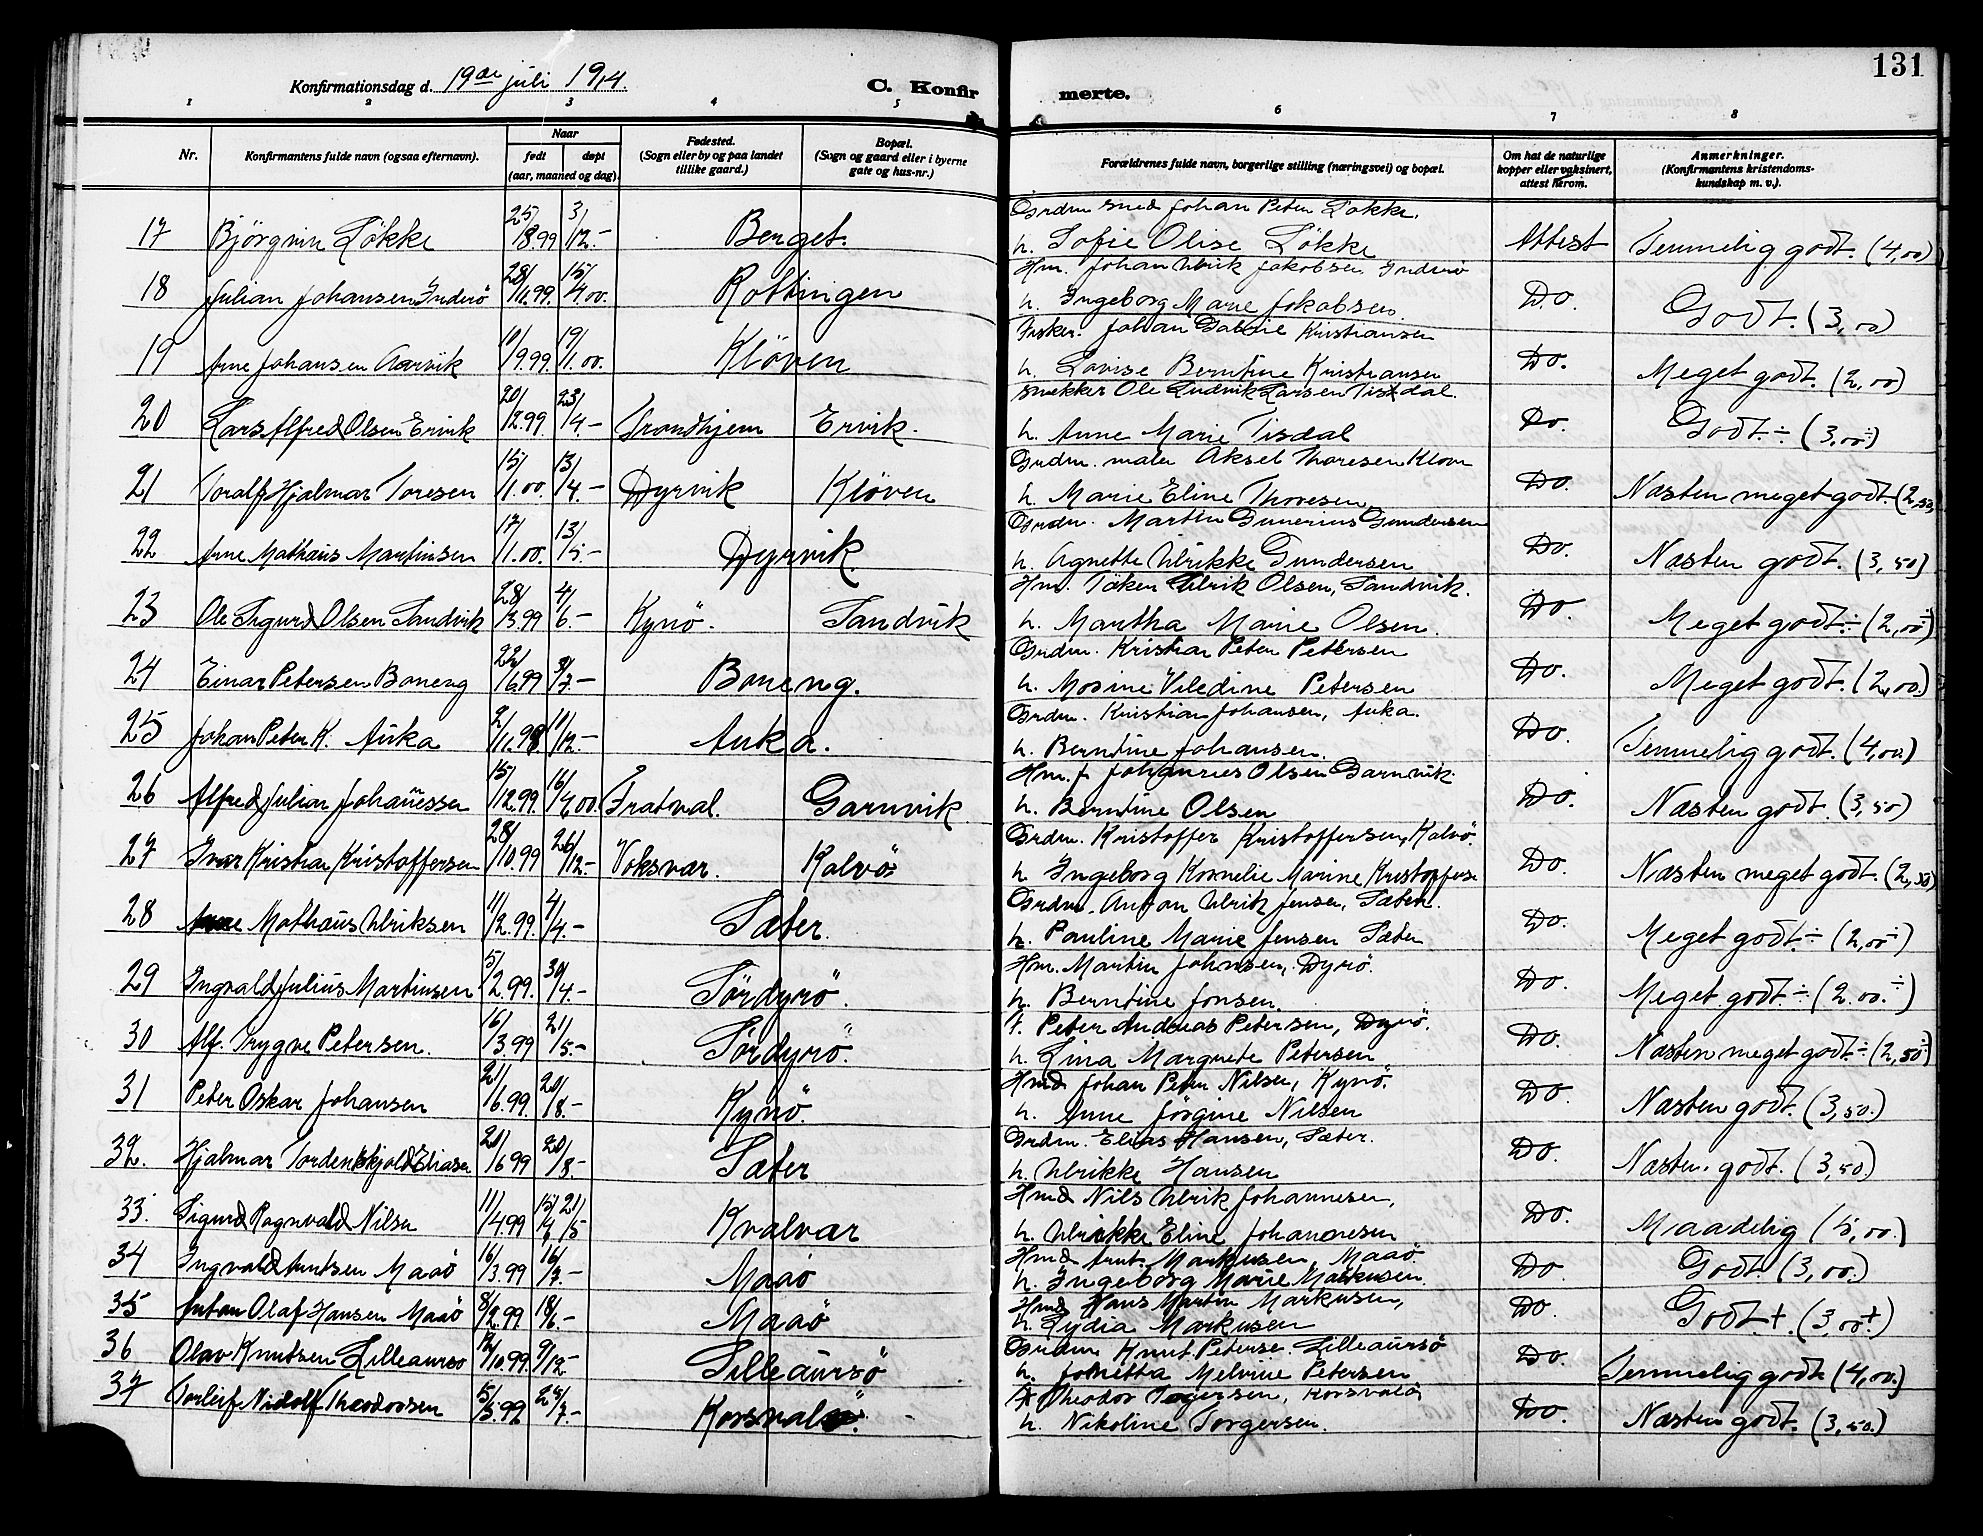 131
Konfirmationsdag d. 19de juli 1914. C. Konfirmerte.
1 2 3 4 5 6 7 8
Nr. Konfirmantens fulde navn (ogsaa efternavn). Naar født døpt (aar, maaned og dag). Fødested. (Sogn eller by og paa landet tillike gaard.) Bopæl. (Sogn og gaard eller i byerne gate og hus-nr.) Forældrenes fulde navn, borgerlige stilling (næringsvei) og bopæl. Om hat de naturlige kopper eller vaksinert, attest herom. Anmerkninger. (Konfirmantens kristendoms-kundskap m. v.).
Grdm smed Johan Peter Løkke.
17 Bjørgvin Løkke 25/8.99 3/12.– Berget. h. Sofie Olise Løkke Attest Temmelig godt. (4,00)
Hm. Johan Ulrik Jakobsen Inderö
18 Julian Johansen Inderö 28/11.99. 15/4.00. Rottingen h. Ingeborg Marie Jakobsen. Do. Godt. (3,00)
Fisker. Johan Kristiansen
19 Arne Johansen Aarvik 11/9.99. 19/1.00. Klöven h. Lovise Berntine Kristiansen Do. Meget godt. (2,00)
snekker Ole Ludvik Larsen Tisdal.
20 Lars Alfred Olsen Ervik 20/12.99 23/4.– Trondhjem Ervik. h. Anne Marie Tisdal Do. Godt.÷ (3,00÷)
Grdm. maler Aksel Thoresen Klöven
21 Toralf Hjalmar Toresen 15/1.00. 13/4.– Dyrvik Klöven h. Marie Eline Thoresen Do. Næsten meget godt. (2,50)
Grdm. Martin Gunerius Gundersen
22 Arne Mathäus Martinsen 17/1.00. 13/5.– Dyrvik. h. Agnette Ulrikke Gundersen Do. Næsten godt. (3,50)
Hm. Töken Ulrik Olsen, Sandvik.
23 Ole Sigurd Olsen Sandvik 28/3.99 4/6.– Kynö. Sandvik h. Martha Marie Olsen. Do. Meget godt÷ (2,00÷)
Grdm. Kristian Peter Pettersen
24 Einar Petersen Boneng 22/6.99 9/7.– Boneng. h. Mosine Viledine Petersen Do. Meget godt. (2,00.)
Grdm. Kristian Johansen, Auka.
25 Johan Peter K. Auka 2/11.98 11/12.– Auka. h. Berntine Johansen. Do. Temmelig godt. (4,00.)
Hm. f. Johannes Olsen Garnvik.
26 Alfred Julian Johannessen 15/12.99. 16/4.00. Fratval. Garnvik h. Berntine Olsen Do. Næsten godt. (3,50)
Grdm. Kristoffer Kristoffersen, Kalvö.
27 Ivar Kristian Kristoffersen 28/10.99 26/12.– Voksvar. Kalvö h Ingeborg Kornelie Marine Kristoffersen Do. Næsten meget godt. (2,50)
Grdm. Anton Ulrik Jensen, Sæter.
28 Arne Mathäus Ulriksen 11/2.99. 4/4.– Sæter. h. Pauline Marie Jensen Sæter Do. Meget godt÷ (2,00÷)
Hm. Martin Johnsen, Dyrö.
29 Ingvald Julius Martinsen 5/2.99. 30/4.– Sördyrö. h. Berntine Jonsen. Do. Meget godt.÷ (2.00.÷)
f. Peter Andreas Petersen, Dyrö.
30 Alf. Trygve Petersen. 16/3.99 21/5.– Sördyrö. h. Lina Margrete Petersen Do. Næsten meget godt÷ (2,50÷)
Hmd Johan Peter Nilsen, Kynö.
31 Peter Oskar Johansen 21/6.99. 20/8.– Kynö. h. Anne Jörgine Nilsen Do. Næsten godt. (3,50.)
Grdm. Elias Hansen, Sæter.
32. Hjalmar Tordenskjold Eliasen. 20/6 99 20/8.– Sæter h. Ulrikke Hansen Do. Næsten godt. (3,50.)
Hmd Nils Ulrik Johannesen,
33. Sigurd Ragnvald Nilsen 11/4.99 15/4 21/5 Kvalvar h. Ulrikke Eline Johannesen Do. Maadelig (5,00.)
Hmd Arnt. Markusen, Maaö.
34 Ingvald Arntsen Maaö 16/3.99 16/7.– Maaö h. Ingeborg Marie Markusen. Do Godt. (3,00.)
Hmd Hans Martin Markusen,
35 Anton Olaf Hansen Maaö 8/2.99 18/6.– Maaö h. Lydia Markusen Do Godt.+. (3,00+)
Grdm Knut Peterse. Lilleaursö
36 Olav Knutsen Lilleaursö 12/10.99. 9/12– Lilleaursö h. Jonetta Melvine Petersen Do. Temmelig godt. (4,00.)
f. Theodor Torgersen, Korsvalö
37 Torleif Nidolf Theodorsen 5/5.99 25/7– Korsvalö. h. Nikoline Torgersen. Do. Næsten godt. (3,50.)